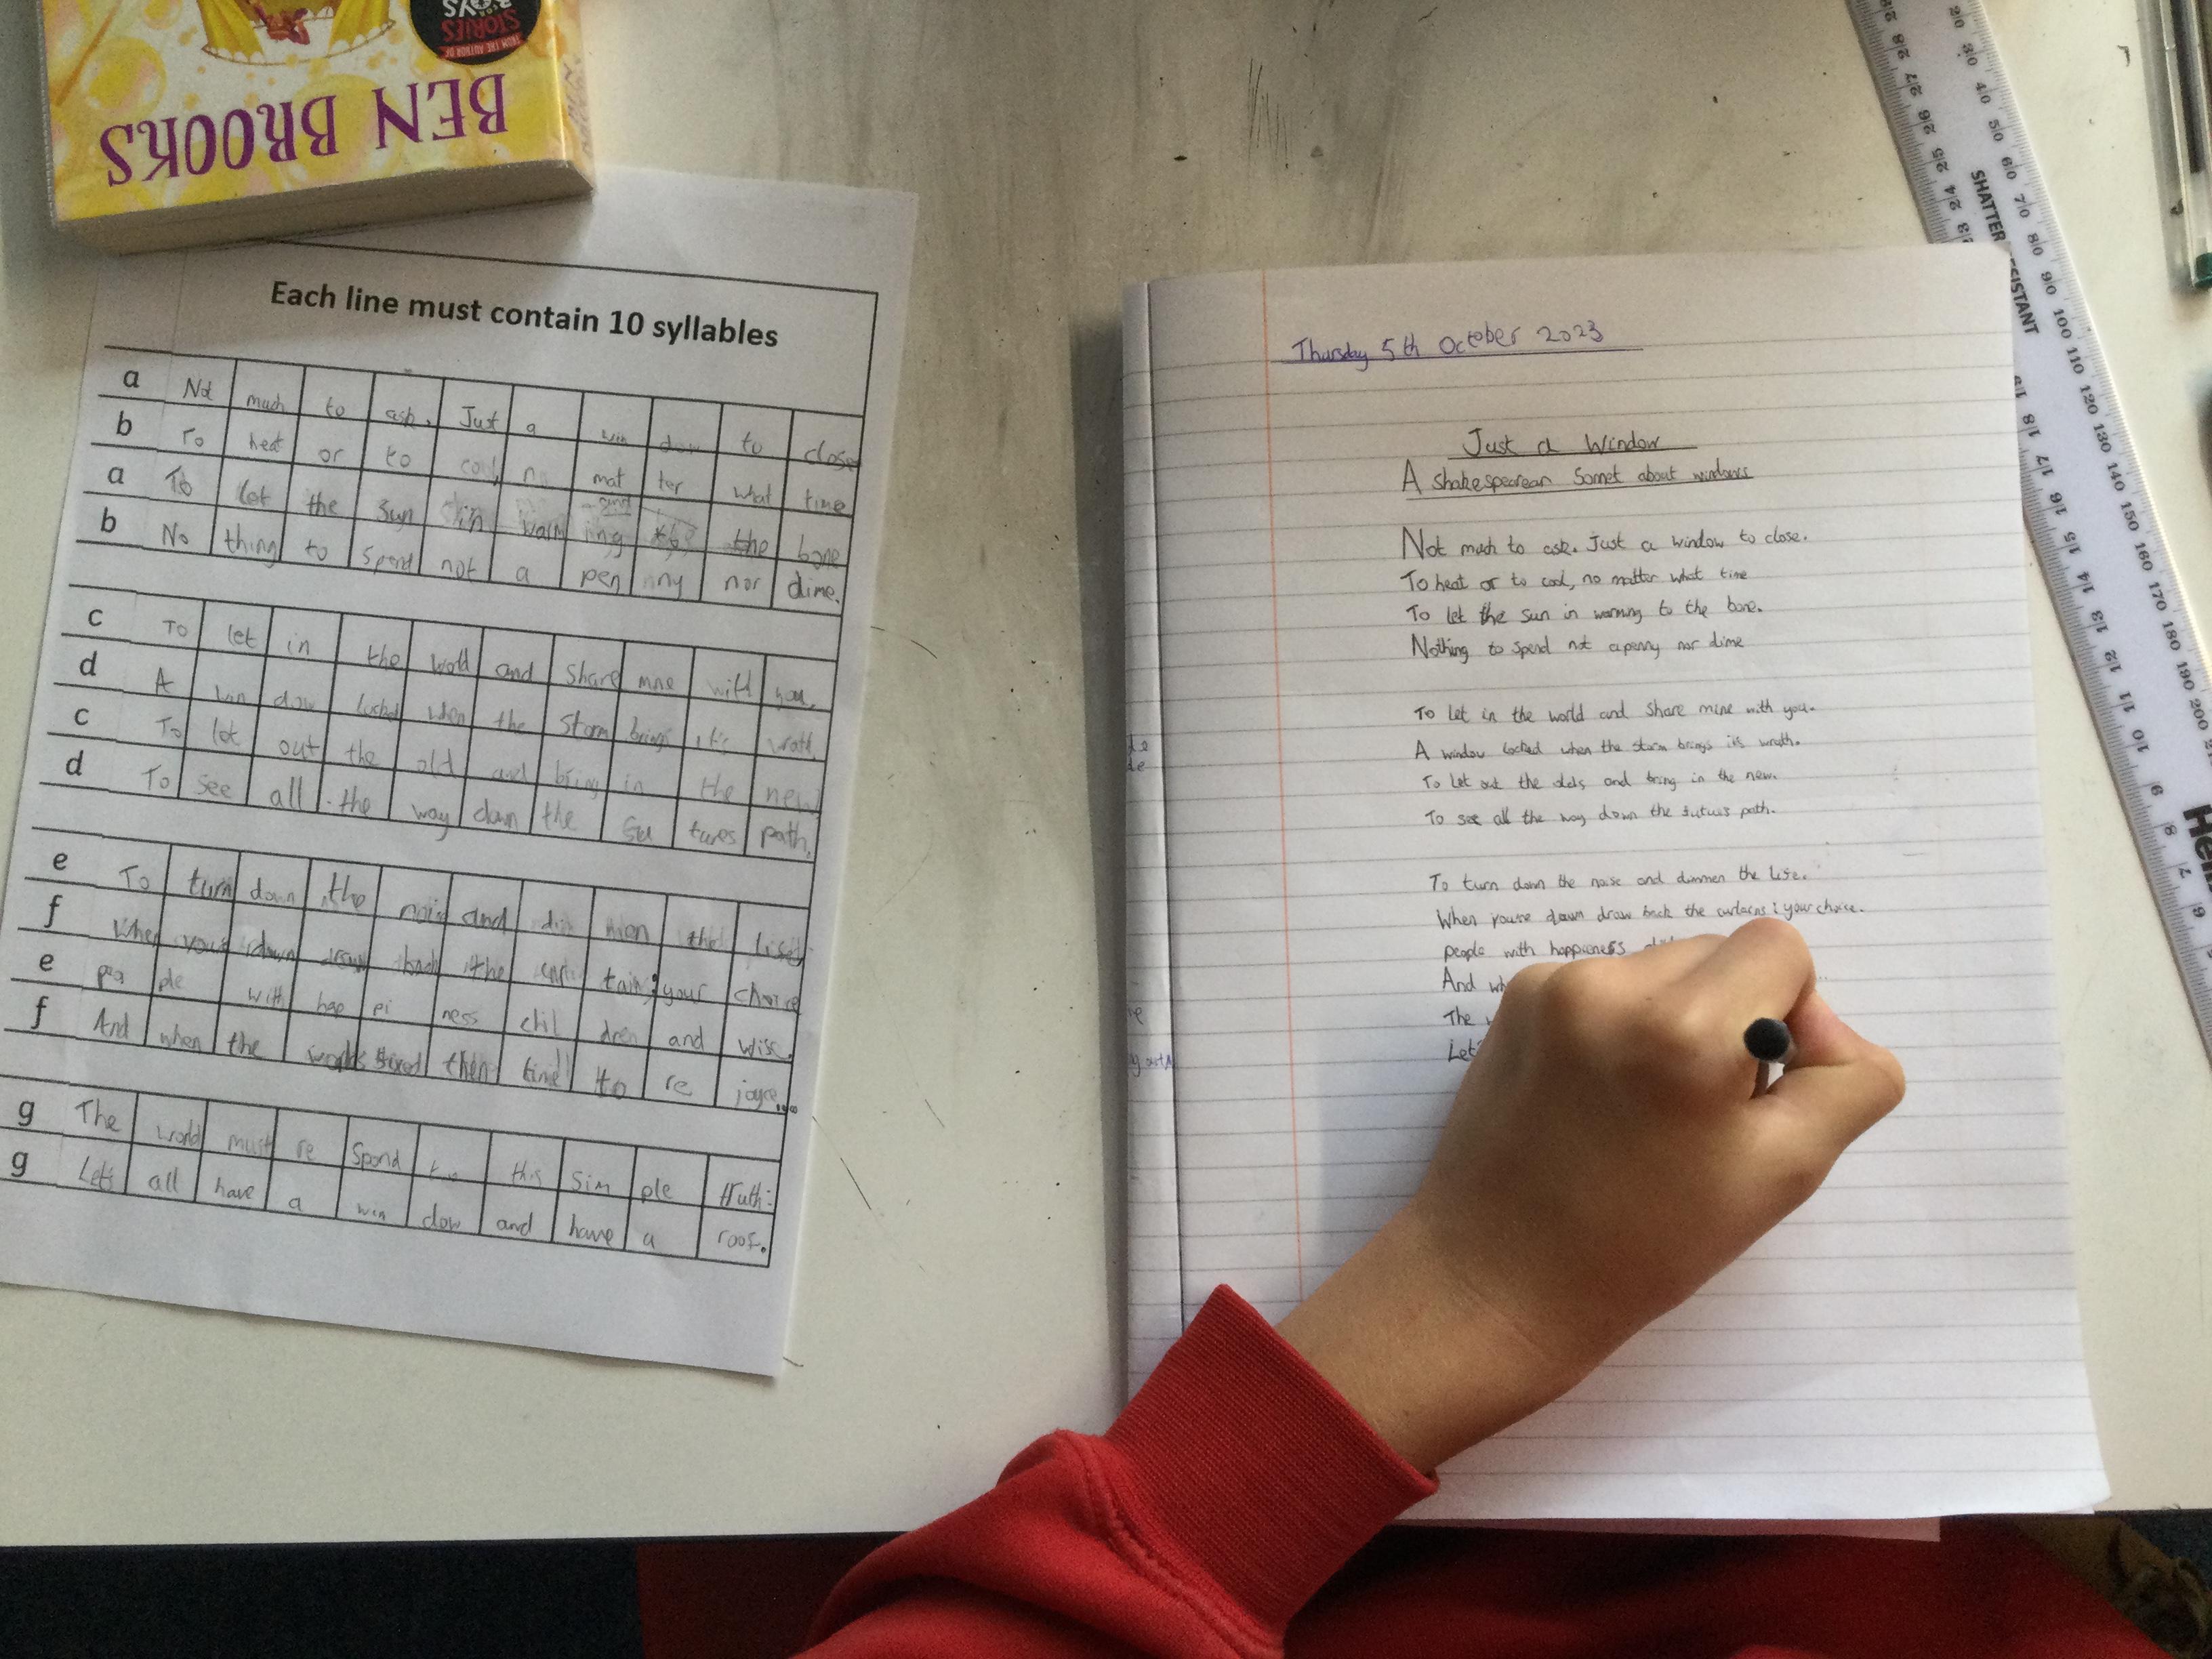 BEN BROOKS
FROM THE AUTHOR OF
STORIES
FOR
BOYS
Each line must contain 10 syllables
a Not much to ask. Just a win dow to close
b To heat or to cool, no mat ter what time
a To let the sun in warm ing the bone
b No thing to spend not a pen ny nor dime.
c To let in the world and share mine with you.
d A win dow locked when the storm brings it's wrath.
c To let out the old and bring in the new
d To see all the way down the fu tures path.
e To turn down the and men the
f When down back the tain; your choice
e peo ple with hap pi ness chil dren and wise.
f And when the then time to re joyce...
g The world must re spond to this sim ple truth:
g Let's all have a win dow and have a roof.
Thursday 5th October 2023
Just a Window
A shakespearean Sonnet about windows
Not much to ask. Just a window to close.
To heat or to cool, no matter what time
To let the sun in warming to the bone.
Nothing to spend not a penny nor dime
To let in the world and share mine with you.
A window locked when the storm brings it's wrath.
To let out the olds and bring in the new.
To see all the way down the futures path.
To turn down the noise and dimmen the
When you're down draw back the curtains; your choice.
people with happieness
And wh
The
Let
SHATTER SISTANT
20 30 40 50 60 70 80 90 100 110 120 130 140 150 160 170 180 190 200
29 28 27 26 25 24 23 19 18 17 16 15 14 13 12 11 10 9 8 7 6